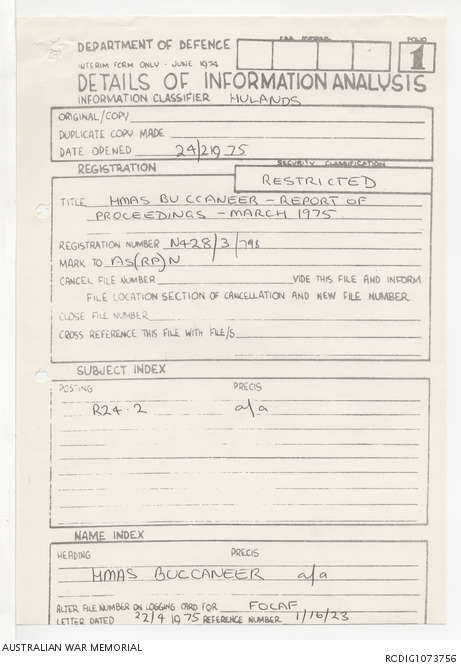 DEPARTMENT OF DEFENCE
FOLIO
1
INTERIM FORM ONLY - JUNE 1974
DETAILS OF INFORMATION ANALYSIS
INFORMATION CLASSIFIER HULANDS
ORIGINAL/COPY
DUPLICATE COPY MADE
DATE OPENED 24/2/19 75
REGISTRATION
SECURITY CLASSIFICATION
RESTRICTED
TITLE HMAS BUCCANEER - REPORT OF
PROCEEDINGS - MARCH 1975
REGISTRATION NUMBER N428/3/798
MARK TO AS(RA)N
CANCEL FILE NUMBER VIDE THIS FILE AND INFORM
FILE LOCATION SECTION OF CANCELLATION AND NEW FILE NUMBER
CLOSE FILE NUMBER
CROSS REFERENCE THIS FILE WITH FILE/S
SUBJECT INDEX
POSTING PRECIS
R24.2 a/a
NAME INDEX
HEADING PRECIS
HMAS BUCCANEER a/a
ALTER FILE NUMBER ON LOGGING CARD FOR FOCAF
LETTER DATED 22/4 19 75 REFERENCE NUMBER 1/16/23
AUSTRALIAN WAR MEMORIAL RCDIG1073756